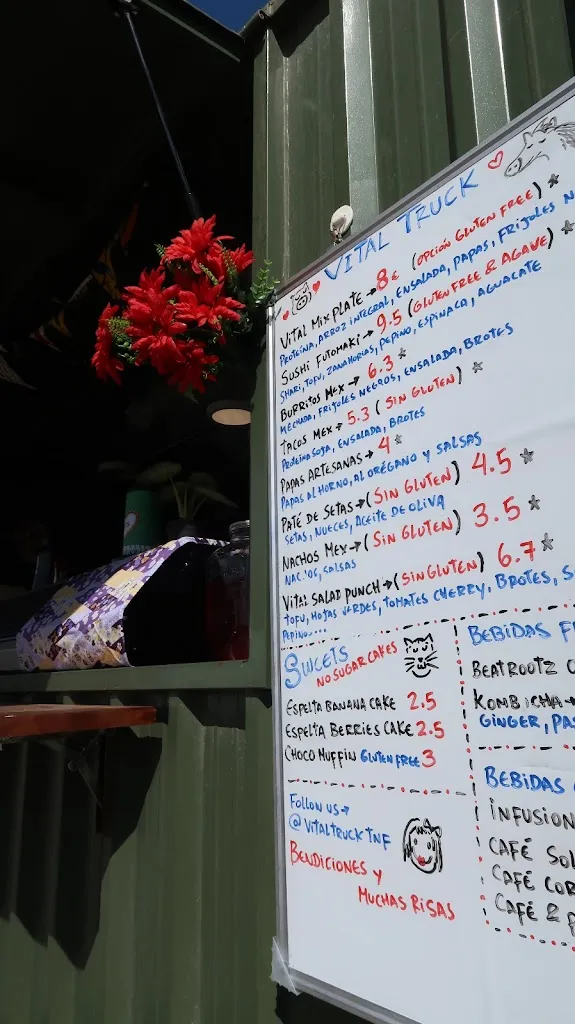 VITAL TRUCK
VITAL MIX PLATE → 8€ (OPCIÓN GLUTEN FREE)
PROTEÍNA, ARROZ INTEGRAL, ENSALADA, PAPAS, FRIJOLES
SUSHI FUTOMAKI → 9.5 (GLUTEN FREE & AGAVE)
SHARI, TOFU, ZANAHORIAS, PEPINO, ESPINACA, AGUACATE
BURRITOS MEX → 6.3
MECHADA, FRIJOLES NEGROS, ENSALADA, BROTES
TACOS MEX → 5.3 (SIN GLUTEN)
PROTEÍNA SOJA, ENSALADA, BROTES
PAPAS ARTESANAS → 4
PAPAS AL HORNO, AL ORÉGANO Y SALSAS
PATÉ DE SETAS → (SIN GLUTEN) 4.5
SETAS, NUECES, ACEITE DE OLIVA
NACHOS MEX → (SIN GLUTEN) 3.5
NACHOS, SALSAS
VITAL SALAD PUNCH → (SIN GLUTEN) 6.7
TOFU, HOJAS VERDES, TOMATES CHERRY, BROTES,
PEPINO....
SWEETS
NO SUGAR CAKES
ESPELTA BANANA CAKE 2.5
ESPELTA BERRIES CAKE 2.5
CHOCO MUFFIN GLUTEN FREE 3
FOLLOW US →
@VITALTRUCKTNF
BENDICIONES Y
MUCHAS RISAS
BEBIDAS
BEATROOTZ
KOMBICHA →
GINGER,
BEBIDAS
INFUSION
CAFÉ
CAFÉ
CAFÉ